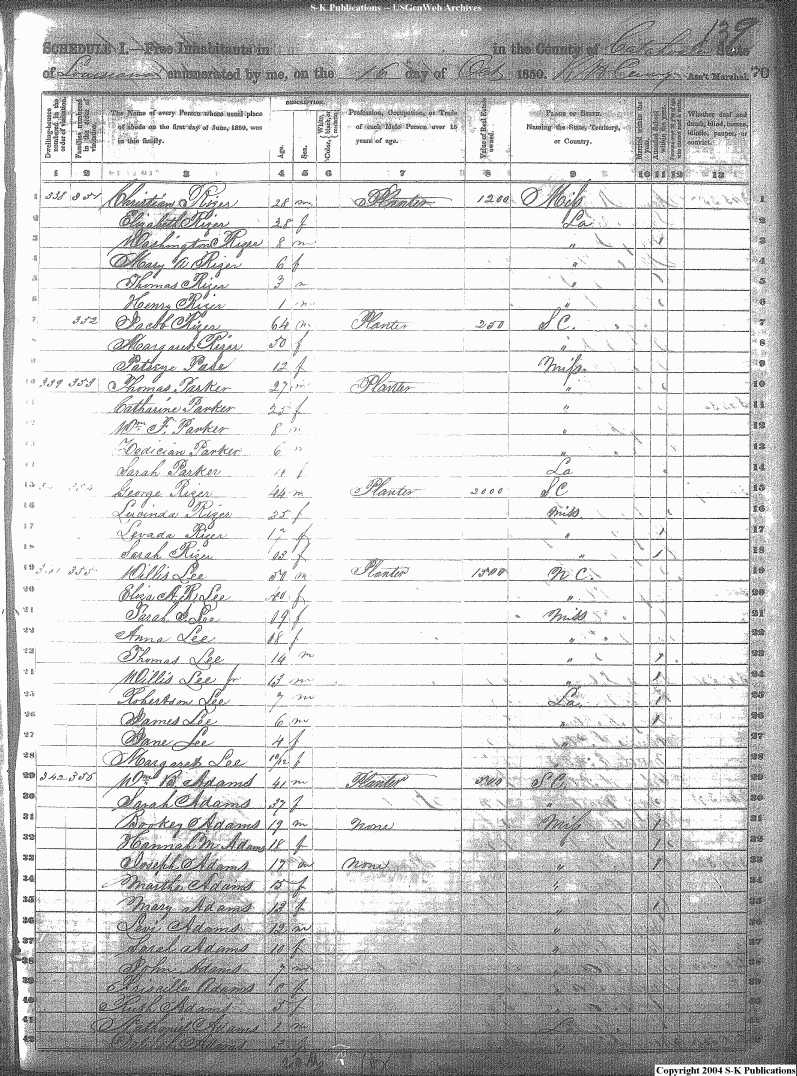 S-K Publications -- USGenWeb Archives
139
SCHEDULE I.—Free Inhabitants in in the County of Catahoula State
of Louisiana enumerated by me, on the 16 day of Oct 1850. Ass't Marshal. 70
DESCRIPTION.
Dwelling-houses numbered in the order of visitation.
Families numbered in the order of visitation.
The Name of every Person whose usual place of abode on the first day of June, 1850, was in this family.
Age.
Sex.
Color, White, black, or mulatto.
Profession, Occupation, or Trade of each Male Person over 15 years of age.
Value of Real Estate owned.
PLACE OF BIRTH. Naming the State, Territory, or Country.
Married within the year.
Whether deaf and dumb, blind, insane, idiotic, pauper, or convict.
1 2 3 4 5 6 7 8 9 10 11 12 13
1 338 351 Christian Rizer 28 m Planter 1200 Miss 1
2 Elizabeth Rizer 28 f La 2
3 Washington Rizer 8 m " 1 3
4 Mary A Rizer 6 f " 4
5 Thomas Rizer 3 m " 5
6 Henry Rizer 1 m " 6
7 352 Jacob Rizer 64 m Planter 250 S C. 7
8 Margaret Rizer 50 f " 8
9 12 f Miss 9
10 339 353 Thomas Parker 27 m Planter " 10
11 Catharine Parker 25 f " 11
12 Wm F. Parker 8 m " 12
13 Parker 6 m " 13
14 Sarah Parker 4 f La 14
15 354 George Rizer 44 m Planter 2000 S C 15
16 Lucinda Rizer 35 f Miss 16
17 Levada Rizer 17 f " 1 17
18 Sarah Rizer 13 f " 1 18
19 341 355 Willis Lee 50 m Planter 1500 N C. 19
20 Eliza A. R. Lee 40 f " 20
21 Sarah J. Lee 19 f Miss 21
22 Anna Lee 18 f " 22
23 Thomas Lee 14 m " 1 23
24 Willis Lee Jr 13 m " 1 24
25 Robertson Lee 7 m La 1 25
26 James Lee 6 m " 1 26
27 Jane Lee 4 f " 27
28 Margaret Lee f " 28
29 342 356 Wm B Adams 41 m Planter S C. 29
30 Sarah Adams 37 f " 30
31 Bookey Adams 19 m None Miss 1 31
32 Hannah M. Adams 18 f " 1 32
33 Joseph Adams 17 m None " 1 33
34 Martha Adams 15 f " 34
35 Mary Adams 13 f " 1 35
36 Levi Adams 12 m " 36
37 Sarah Adams 10 f " 37
38 John Adams 7 m " 38
39 Priscilla Adams 6 f " 39
40 Ruth Adams 5 f " 40
41 Nathaniel Adams 2 m La 41
42 Adams f 42
Copyright 2004 S-K Publications